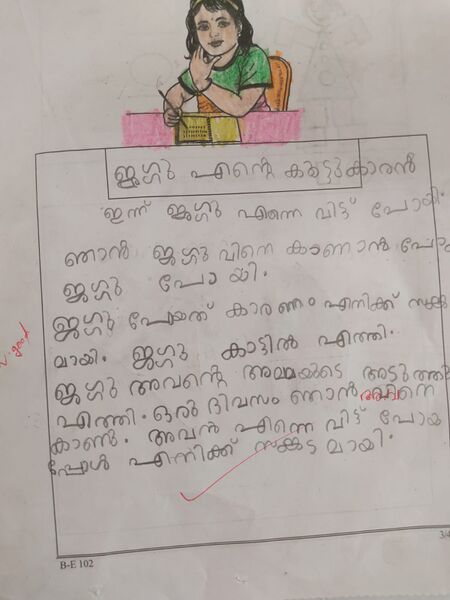 ജഗ്ഗു എന്റെ കൂട്ടുകാരൻ
ഇന്ന് ജഗ്ഗു എന്നെ വിട്ട് പോയി.
ഞാൻ ജഗ്ഗു വിനെ കാണാൻ പോ
ജഗ്ഗു പോ യി.
ജഗ്ഗു പോയത് കാരണം എനിക്ക് സങ്കട
മായി. ജഗ്ഗു കാട്ടിൽ എത്തി.
ജഗ്ഗു അവന്റെ അമ്മയുടെ അടുത്ത്
എത്തി. ഒരു ദിവസം ഞാൻ അവനെ
കാണും. അവൻ എന്നെ വിട്ട് പോയ
പ്പോൾ എനിക്ക് സങ്കട മായി.
v. good
B-E 102
3/4